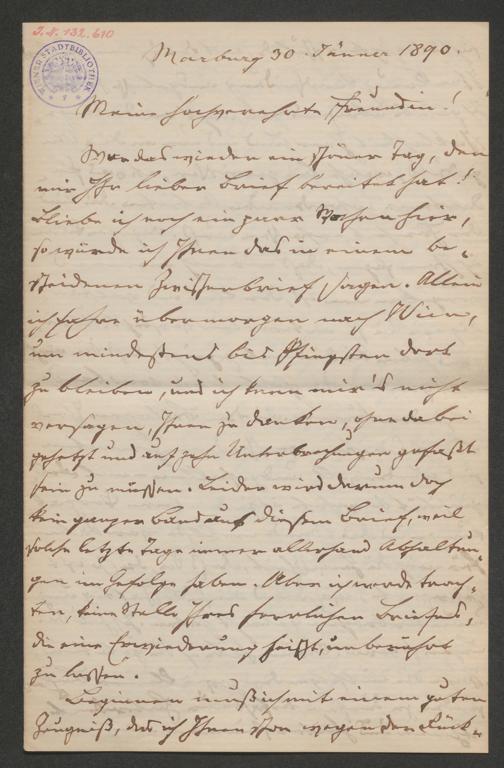 J. N. 132.610
WIENER STADTBIBLIOTHEK
Marburg 30. Jänner 1890.
Meine hochverehrte Freundin!
War das wieder ein schöner Tag, den
mir Ihr lieber Brief bereitet hat!
Bliebe ich noch ein paar Wochen hier,
so würde ich Ihnen das in einem be-
scheidenen Zwischenbrief sagen. Allein
ich fahre übermorgen nach Wien,
um mindestens bis Pfingsten dort
zu bleiben, und ich kann mir's nicht
versagen, Ihnen zu danken, ohne dabei
gehetzt und auf zehn Unterbrechungen gefaßt
sein zu müssen. Leider wird darum doch
kein ganzer Band aus diesem Brief, weil
solche letzte Tage immer allerhand Abhaltun-
gen im Gefolge haben. Aber ich werde trach-
ten, keine Stelle Ihres herrlichen Briefes,
die eine Erwiederung heischt, unberührt
zu lassen.
Beginnen muß ich mit einem guten
Zeugniß, das ich Ihnen schon wegen der Rück-